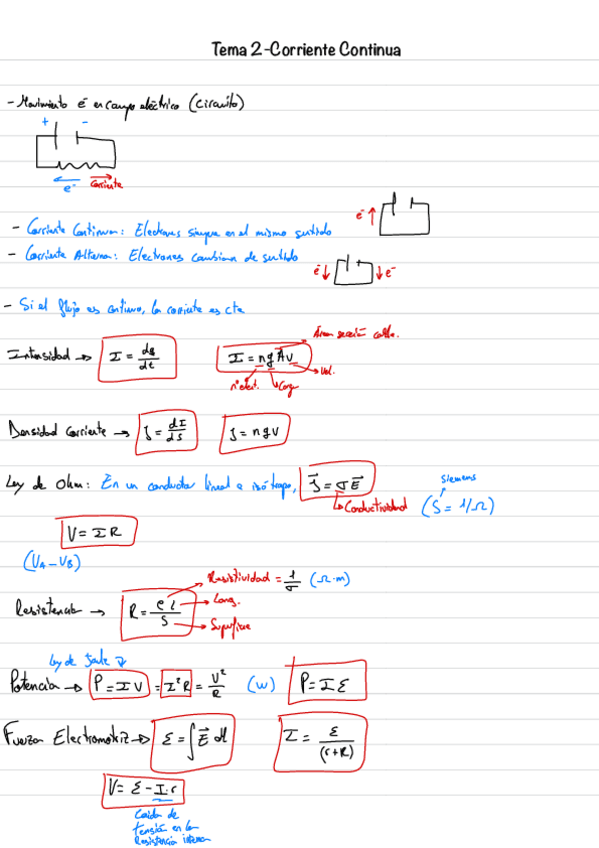 Tema 2-Corriente Continua
- Movimiento e⁻ en campo eléctrico (Circuito)
+ -
e⁻ Corriente
e⁻
- Corriente Continua: Electrones siempre en el mismo sentido
- Corriente Alterna: Electrones cambian de sentido
e⁻ e⁻
- Si el flujo es continuo, la corriente es cte
Área sección cable.
Intensidad → I = dq/dt I = nqAv
nº elect. Carga Vel.
Densidad Corriente → J = dI/dS J = nqv
Siemens
Ley de Ohm: En un conductor lineal e isótropo, J = σE
Conductividad (S = 1/Ω)
V = IR
(VA - VB)
Resistividad = 1/σ (Ω·m)
Resistencia → R = ρl/S
Long.
Superficie
Ley de Joule
Potencia → P = IV = I²R = V²/R (W) P = Iε
Fuerza Electromotriz → ε = ∫E dl I = ε/(r+R)
V = ε - I·r
Caída de
tensión en la
Resistencia interna